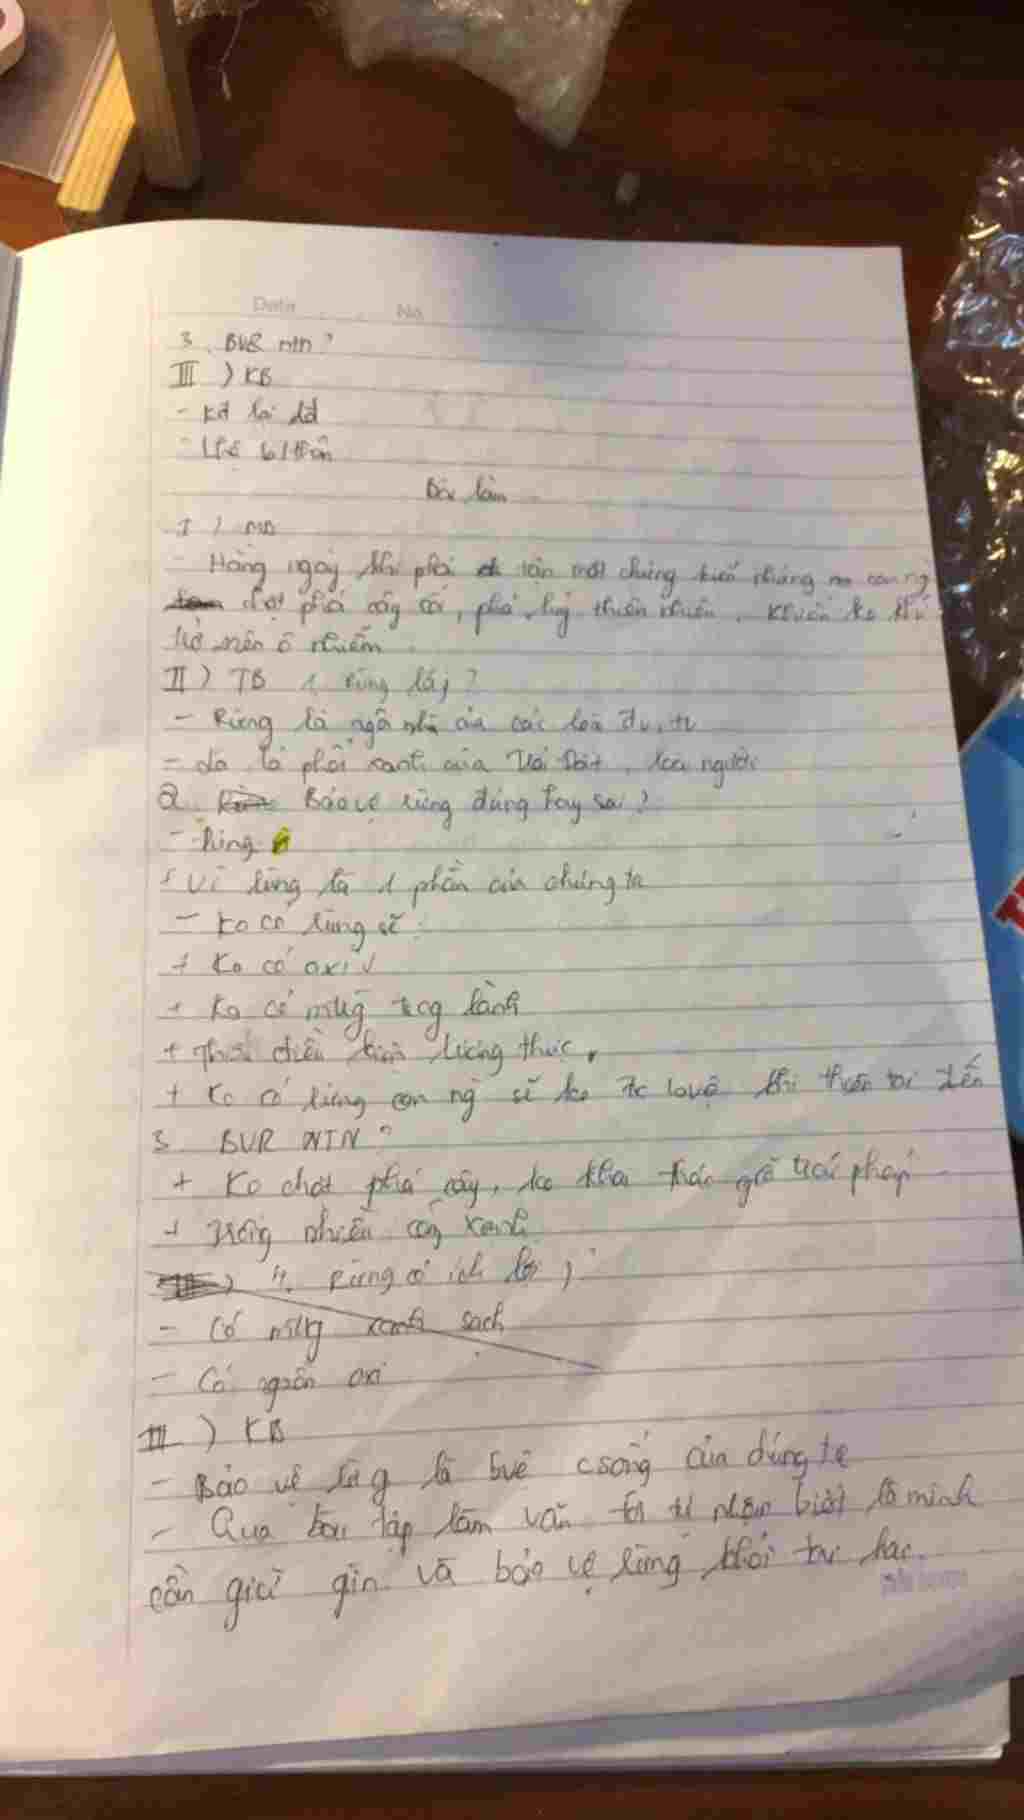 Date No
3. BVR ntn?
III) KB
- KĐ lại đề
- Lhệ b/thân
Bài làm
I) MB
- Hàng ngày khi phải tận mắt chứng kiến những con ng
chặt phá cây cối, phá hủy thiên nhiên, khiến ko khí
trở nên ô nhiễm
II) TB 1. Rừng là j?
- Rừng là ngôi nhà của các loài đv, tv
- là lá phổi xanh của Trái Đất, loài người
2. Bảo vệ rừng đúng hay sai?
- Đúng
+ Vì rừng là 1 phần của chúng ta
- Ko có rừng sẽ:
+ Ko có oxi
+ Ko có mtrg trg lành
+ Thiếu lương thực
+ Ko có rừng con ng sẽ ko đc bvệ khi thiên tai đến
3. BVR NTN?
+ Ko chặt phá cây, ko khai thác gỗ trái phép
+ Trồng nhiều cây xanh
4. Rừng có ích lợi j?
- Có mtrg xanh sạch
- Có nguồn oxi
III) KB
- Bảo vệ rừng là bvệ csống của chúng ta
- Qua bài tập làm văn tôi tự nhận biết là mình
cần giữ gìn và bảo vệ rừng khỏi tai hại.